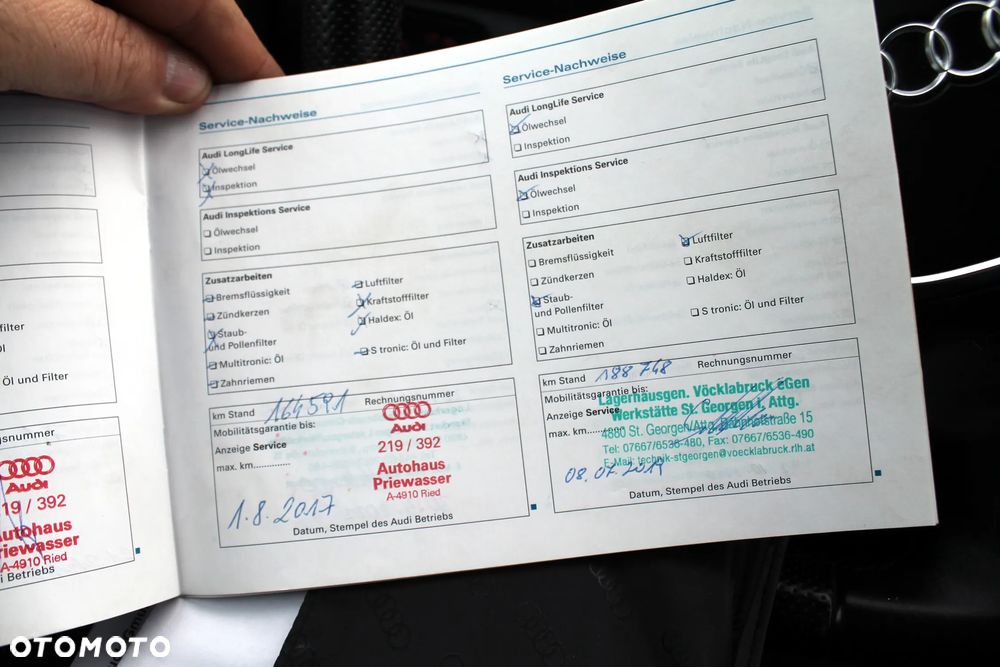 ifter
Öl
Öl und Filter
gsnummer
Audi
19 / 392
utohaus
riewasser
A-4910 Ried
i Betriebs
Service-Nachweise
Audi LongLife Service
Ölwechsel
Inspektion
Audi Inspektions Service
Ölwechsel
Inspektion
Zusatzarbeiten
Bremsflüssigkeit
Luftfilter
Zündkerzen
Kraftstofffilter
Staub-
und Pollenfilter
Haldex: Öl
Multitronic: Öl
S tronic: Öl und Filter
Zahnriemen
km Stand 164591 Rechnungsnummer
Mobilitätsgarantie bis:
Anzeige Service
max. km..............
Audi
219 / 392
Autohaus
Priewasser
A-4910 Ried
1.8.2017
Datum, Stempel des Audi Betriebs
Service-Nachweise
Audi LongLife Service
Ölwechsel
Inspektion
Audi Inspektions Service
Ölwechsel
Inspektion
Zusatzarbeiten
Bremsflüssigkeit
Luftfilter
Zündkerzen
Kraftstofffilter
Staub-
und Pollenfilter
Haldex: Öl
Multitronic: Öl
S tronic: Öl und Filter
Zahnriemen
km Stand 188748 Rechnungsnummer
Mobilitätsgarantie bis:
Anzeige Service
max. km..........
Lagerhausgen. Vöcklabruck eGen
Werkstätte St. Georgen i. Attg.
4880 St. Georgen/Attg. Bahnhofstraße 15
Tel: 07667/6536-480, Fax: 07667/6536-490
E-Mail: technik-stgeorgen@voecklabruck.rlh.at
08.07.2019
Datum, Stempel des Audi Betriebs
OTOMOTO